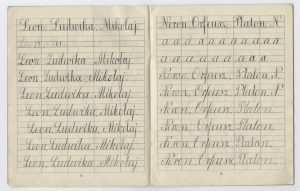 Leon, Ludwika, Mikołaj.
Leon, Ludwika, Mikołaj.
Leon, Ludwika, Mikołaj.
Leon, Ludwika, Mikołaj.
Leon, Ludwika, Mikołaj.
Leon, Ludwika, Mikołaj.
Leon, Ludwika, Mikołaj.
Leon, Ludwika, Mikołaj
Neron, Orfeusz, Platon. N
a a a a a a a a a a
a a a a a a a a a a
Neron, Orfeusz, Platon. N
Neron, Orfeusz, Platon N
Neron, Orfeusz, Platon
Neron, Orfeusz, Platon.
Neron, Orfeusz, Platon.
Neron, Orfeusz, Platon.